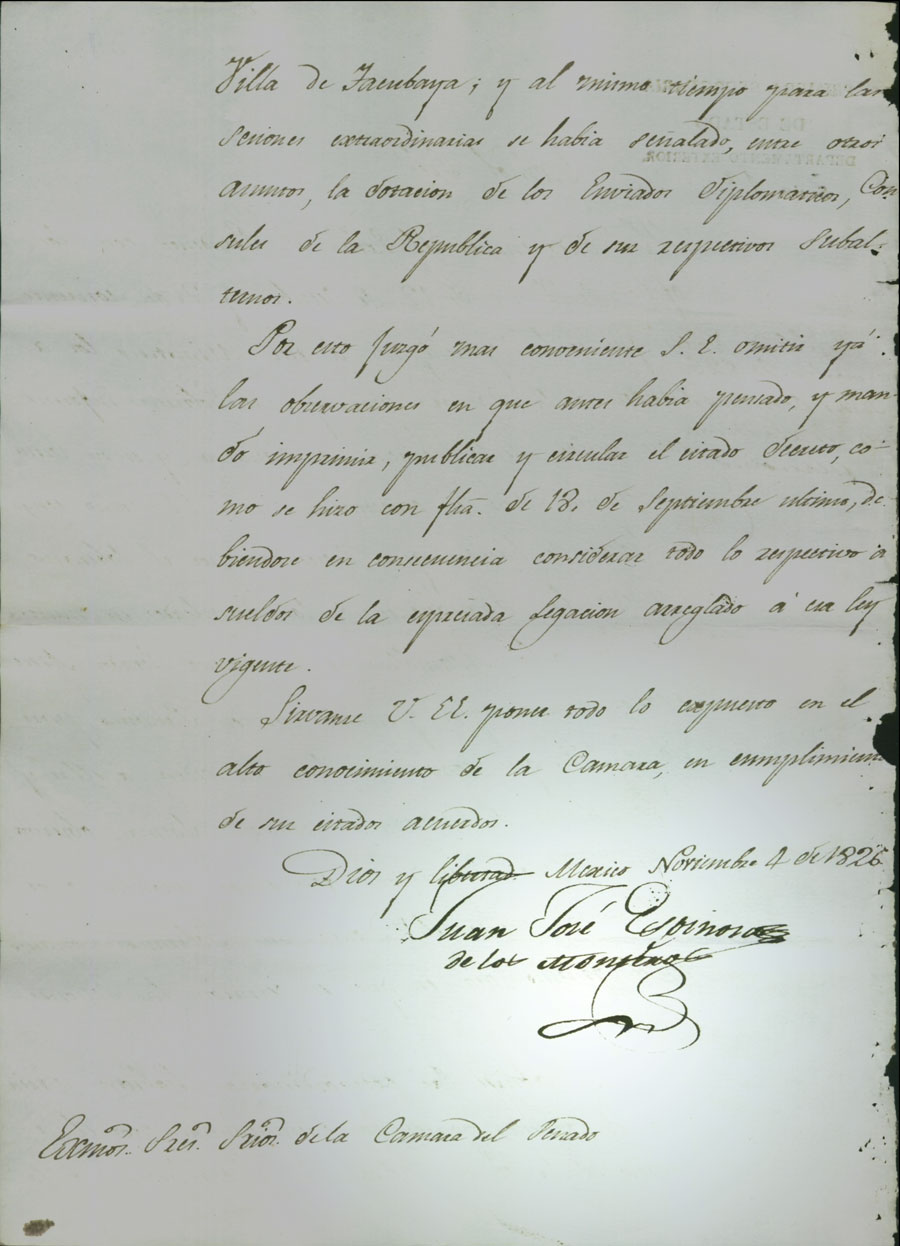 Villa de Tacubaya; y al mismo tiempo para las
seciones extraordinarias se habia señalado, entre otros
asuntos, la dotacion de los Enviados diplomaticos, Con-
sules de la Republica y de sus respectivos subal-
ternos.
Por esto juzgó mas conveniente S. E. omitir yá
las observaciones en que antes habia pensado, y man-
dó imprimir, publicar y circular el citado decreto, co-
mo se hizo con fha. de 18. de Septiembre ultimo, de-
biendose en consecuencia considerar todo lo respectivo á
sueldos de la expresada Legacion arreglado á esa ley
vigente.
Sirvanse V. EE. poner todo lo expuesto en el
alto conocimiento de la Camara, en cumplimiento
de sus citados acuerdos.
Dios y libertad Mexico Noviembre 4 de 1826
Juan José Espinosa
de los Monteros
Exmôs. Sres. Srios. de la Camara del Senado
DEPARTAMENTO EXTERIOR.